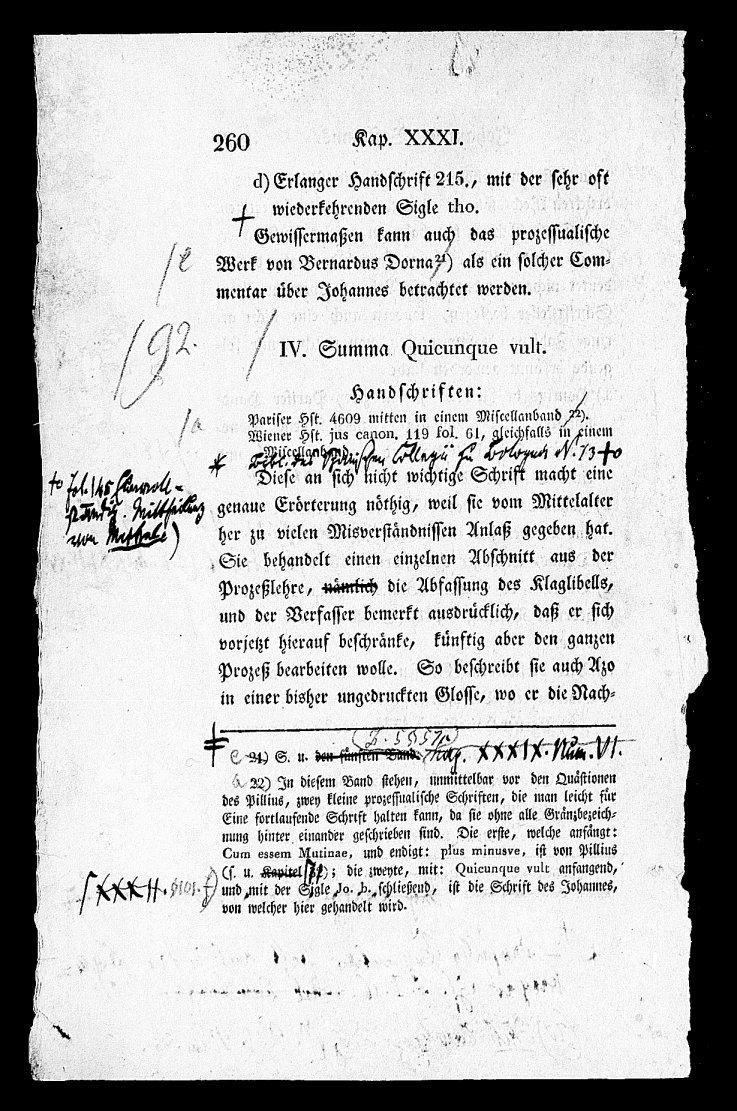 260 Kap. XXXI.
d) Erlanger Handschrift 215., mit der sehr oft
wiederkehrenden Sigle tho.
Gewissermaßen kann auch das prozessualische
Werk von Bernardus Dorna 21) als ein solcher Com-
mentar über Johannes betrachtet werden.
e
92.
IV. Summa Quicunque vult.
Handschriften:
Pariser Hst. 4609 mitten in einem Miscellanband 22).
a
Wiener Hst. jus canon. 119 fol. 61, gleichfalls in einem
Miscellanband.
* Bibl. des Spanischen Collegii zu Bologna N. 73
Diese an sich nicht wichtige Schrift macht eine
genaue Erörterung nöthig, weil sie vom Mittelalter
her zu vielen Misverständnissen Anlaß gegeben hat.
Sie behandelt einen einzelnen Abschnitt aus der
Prozeßlehre, nämlich die Abfassung des Klaglibells,
und der Verfasser bemerkt ausdrücklich, daß er sich
vorjetzt hierauf beschränke, künftig aber den ganzen
Prozeß bearbeiten wolle. So beschreibt sie auch Azo
in einer bisher ungedruckten Glosse, wo er die Nach-
fol. 145 unvoll-
ständig. Mittheilung
von
21) S. u. den fünften Band. Kap. XXXIX. Num. VI.
22) In diesem Band stehen, unmittelbar vor den Quästionen
des Pillius, zwey kleine prozessualische Schriften, die man leicht für
Eine fortlaufende Schrift halten kann, da sie ohne alle Gränzbezeich-
nung hinter einander geschrieben sind. Die erste, welche anfängt:
Cum essem Mutinae, und endigt: plus minusve, ist von Pillius
(s. u. Kapitel ); die zweyte, mit: Quicunque vult anfangend,
und mit der Sigle Jo. b. schließend, ist die Schrift des Johannes,
von welcher hier gehandelt wird.